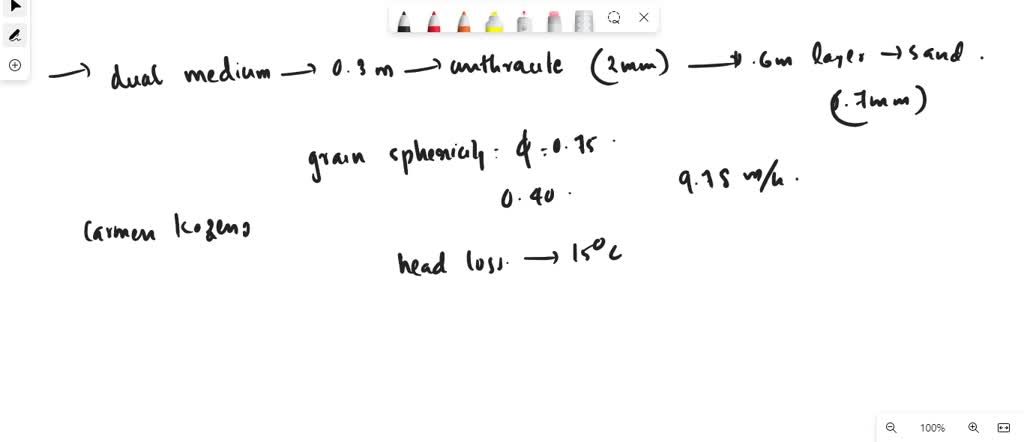 → dual medium → 0.3 m → anthracite (2mm) → .6m layer → sand .
(.7mm)
grain sphericity : ϕ = 0.75 .
0.40 .
9.75 m/h .
Carmen Kozeno
head loss. → 15°C
100%